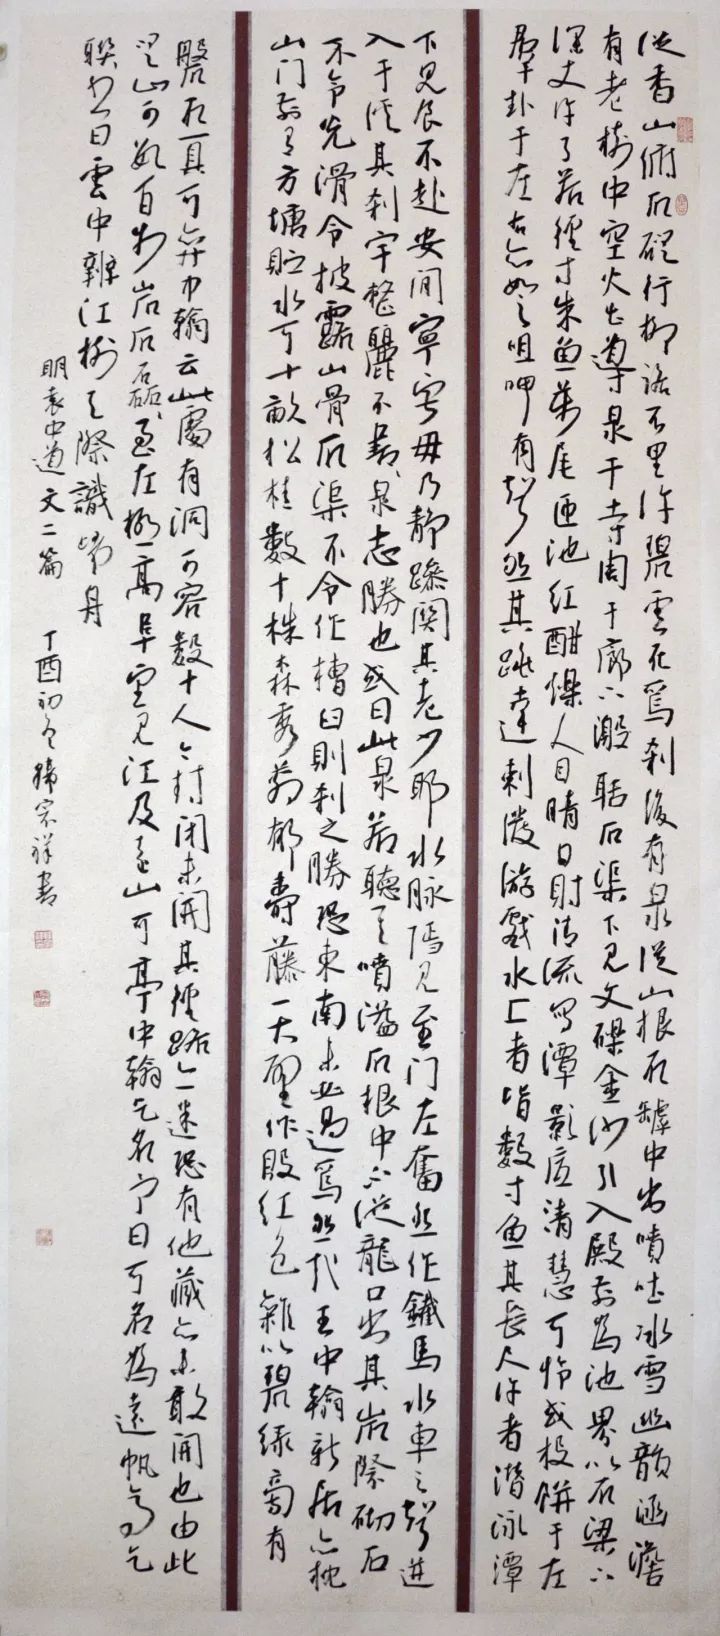 從香山俯石磴行柳路不里許碧雲在焉刹後有泉從山根石罅中出噴吐冰雪幽韻涵澹
有老樹中空火出導泉于寺周于廊下激聒石渠下見文礫金沙引入殿前為池界以石梁下
深丈許了若徑寸朱魚萬尾匝池紅酣爍人目晴日射清流寫潭影底清慧可怜或投餅于左
群赴于左右亦如之咀呷有聲然其跳達刺潑游戲水上者皆數寸魚其長尺許者潛泳潭
下見食不赴安閒寧寂毋乃靜躁關其老少耶水脈隱見至門左奮然作鐵馬水車之聲迸
入于溪其刹宇整麗不書書泉志勝也或曰此泉若聽其噴溢石根中不從龍口出其岩際砌石
不令光滑令披露山骨石渠不令作槽臼則刹之勝恐東南未必過焉然哉王中翰新居亦枕
山門前有方塘貯水可十畝松桂數十株森秀蓊郁壽藤一大壁作殷紅色雜以碧綠高有
磬石一具可弈中翰云此處有洞可容數十人今封閉未開其徑路亦迷恐有他藏亦未敢開也由此
望山可數百步岩石磊磊至左極高阜望見江及遠山可亭中翰乞名予曰可名為遠帆亭乞
聯書曰雲中辨江樹天際識歸舟
明袁中道文二篇
丁酉初冬 宗祥書